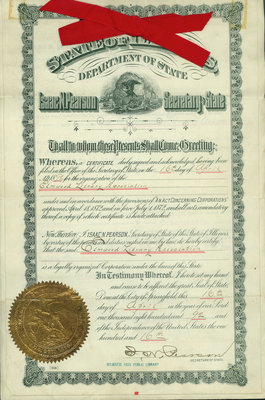 STATE OF
DEPARTMENT OF STATE
Isaac N. Pearson Secretary of State
To all to whom these Presents Shall Come, Greeting:
Whereas, a CERTIFICATE duly signed and acknowledged having been
filed in the Office of the Secretary of State, on the 16th day of April
for the organization of the
Elmwood Library Association
under and in accordance with the provisions of "AN ACT CONCERNING CORPORATIONS"
approved April 18, 1872, and in force July 1, 1872,
a copy of which certificate is hereto attached.
Now Therefore, I, ISAAC N. PEARSON, Secretary of State of the State of Illinois,
by virtue of the powers and duties vested in me by law, do hereby certify
that the said Elmwood Library Association
is a legally organized Corporation under the laws of this State.
In Testimony Whereof, I hereto set my hand
and cause to be affixed the great Seal of State.
Done at the City of Springfield this 16th
day of April in the year of our Lord
one thousand eight hundred and 92 and
of the Independence of the United States the one
hundred and 16th
I. N. Pearson
SECRETARY OF STATE.
PUBLIC LIBRARY